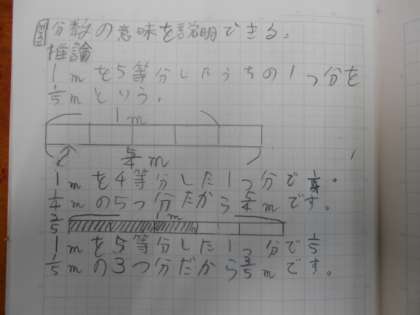 分数の意味を説明できる。
推論
1mを5等分したうちの1つ分を
1/5mという。
1m
5/4m
1mを4等分した1つ分で1/4。
1/4mの5つ分だから5/4mです。
1m
1mを5等分した1つ分で1/5
1/5mの3つ分だから3/5mです。